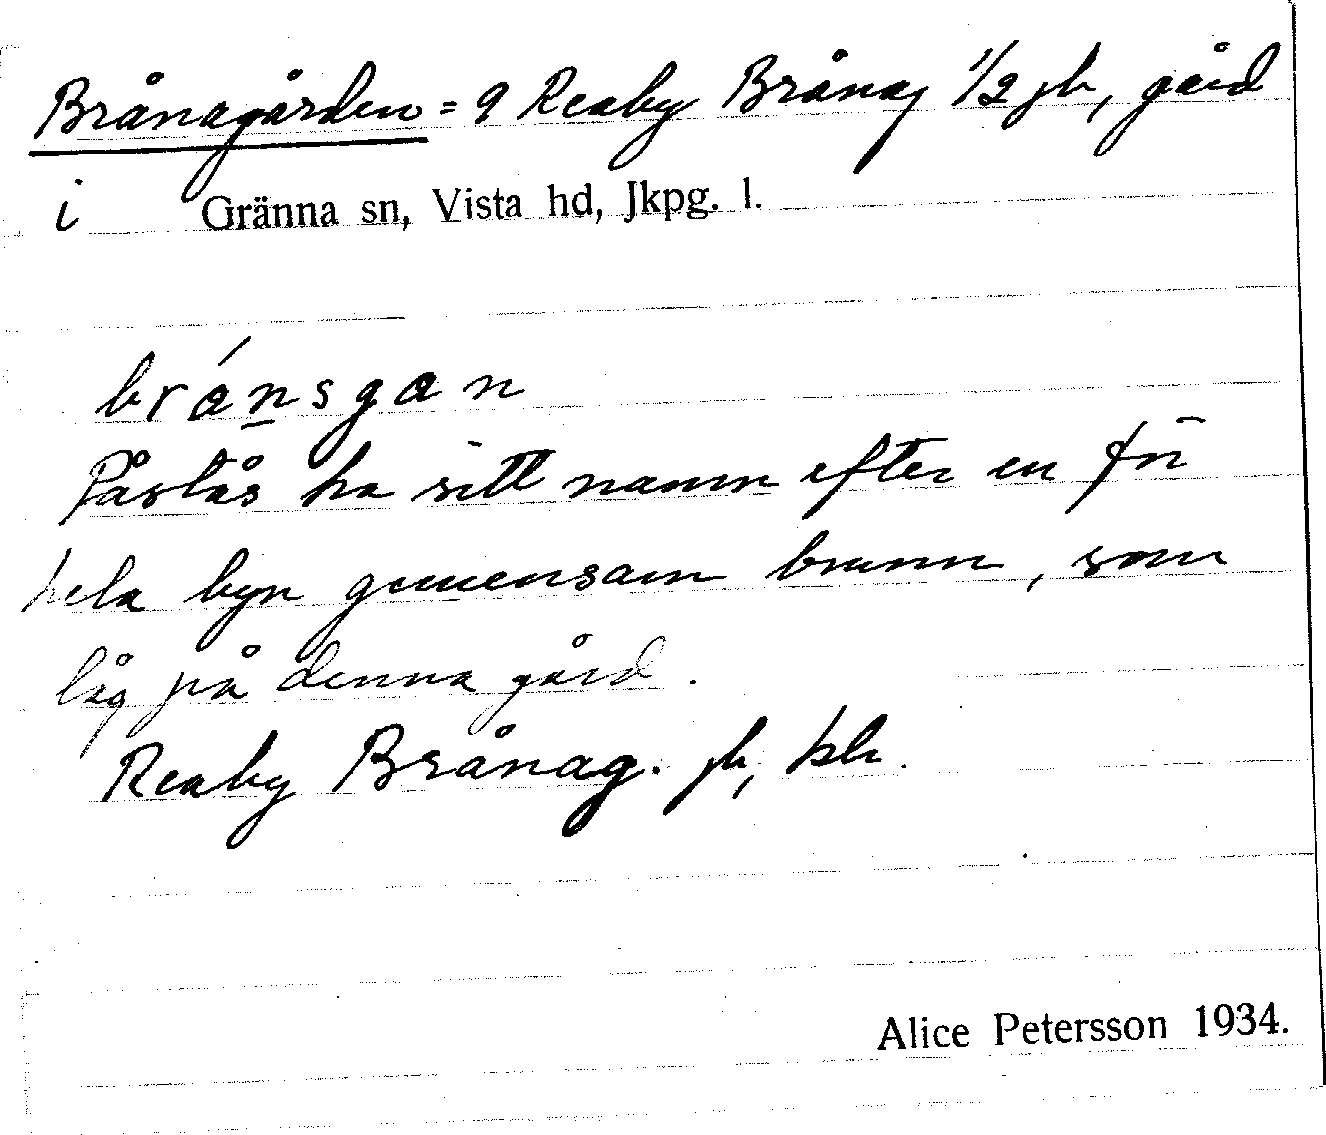 Brånagården = 9 Reaby Brånag 1/2 jb, gård
i Gränna sn, Vista hd, Jkpg. l.
brånsgan
Påstås ha sitt namn efter en för
hela byn gemensam brunn, som
låg på denna gård.
Reaby Brånag. jb, hk.
Alice Petersson 1934.